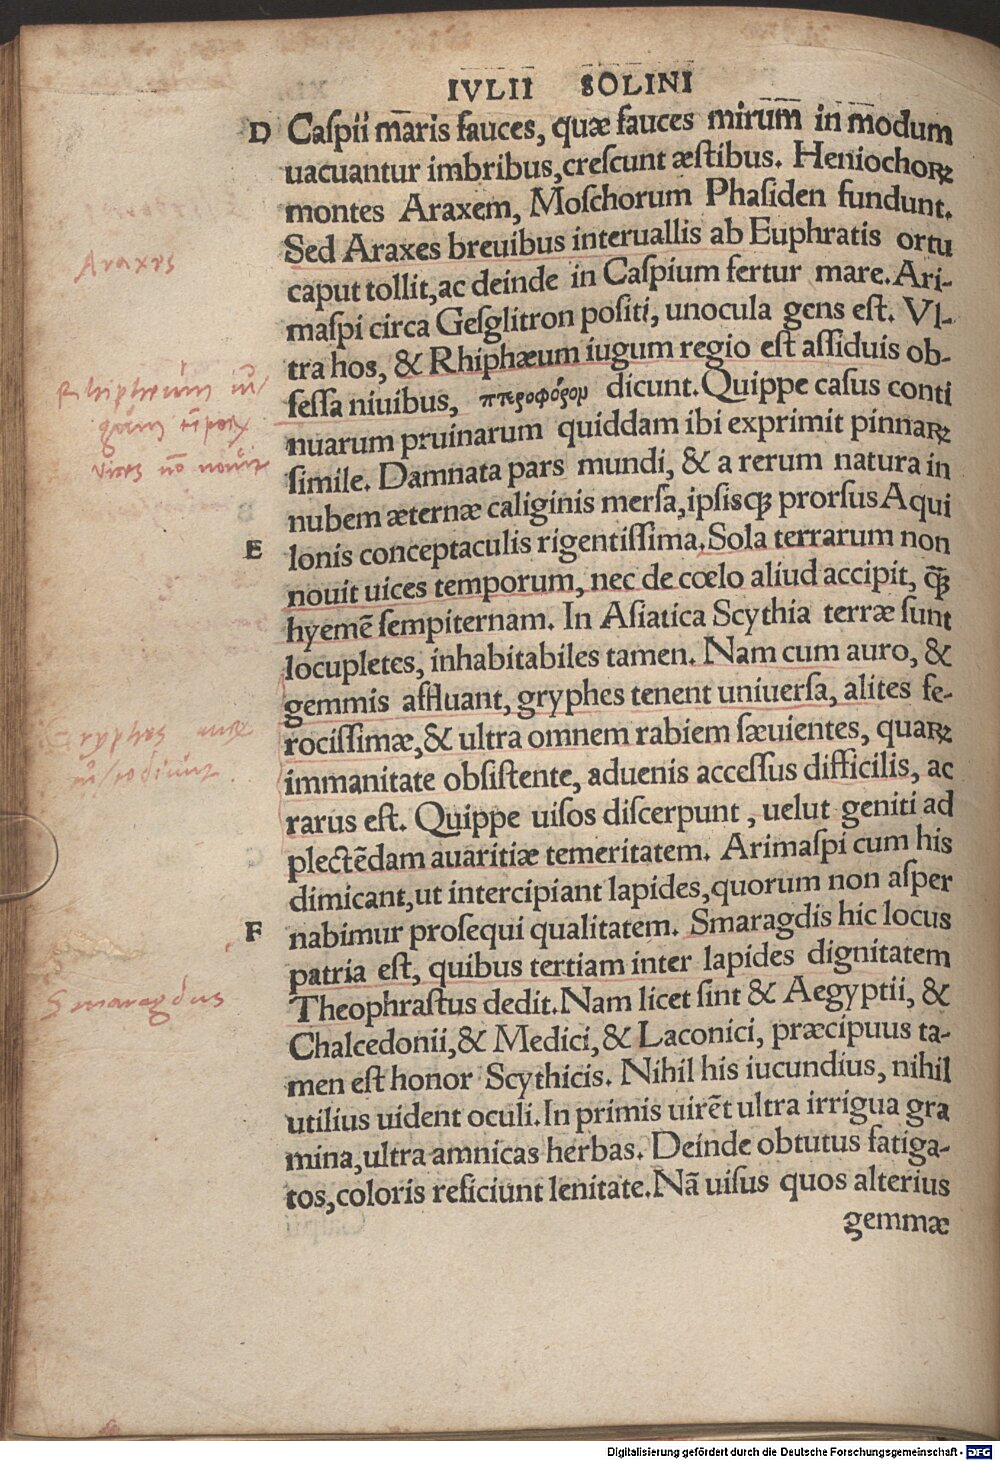 IVLII SOLINI
D Caſpii maris fauces, quæ fauces mirum in modum
uacuantur imbribus,creſcunt æſtibus. Heniochoꝝ
montes Araxem, Moſchorum Phaſiden fundunt.
Sed Araxes breuibus interuallis ab Euphratis ortu
Araxes
caput tollit,ac deinde in Caſpium fertur mare.Ari-
maſpi circa Geſglitron poſiti, unocula gens eſt. Vl-
tra hos, & Rhiphæum iugum regio eſt aſſiduis ob-
Rhipheum
ſeſſa niuibus, πτεροφόρον dicunt.Quippe caſus conti
nuarum pruinarum quiddam ibi exprimit pinnaꝝ
vices nō
ſimile. Damnata pars mundi, & a rerum natura in
nubem æternæ caliginis merſa,ipſisqȝ prorſus Aqui
E lonis conceptaculis rigentiſſima.Sola terrarum non
nouit uices temporum, nec de cœlo aliud accipit, q̄ȝ
hyemē ſempiternam. In Aſiatica Scythia terræ ſunt
locupletes, inhabitabiles tamen. Nam cum auro, &
gemmis affluant, gryphes tenent uniuerſa, alites fe-
ryphes
rociſſimæ,& ultra omnem rabiem ſæuientes, quaꝝ
immanitate obſiſtente, aduenis acceſſus difficilis, ac
rarus eſt. Quippe uiſos diſcerpunt , uelut geniti ad
plectēdam auaritiæ temeritatem. Arimaſpi cum his
dimicant,ut intercipiant lapides,quorum non aſper
F nabimur proſequi qualitatem. Smaragdis hic locus
patria eſt, quibus tertiam inter lapides dignitatem
Smaragdus
Theophraſtus dedit.Nam licet ſint & Aegyptii, &
Chalcedonii,& Medici,& Laconici, præcipuus ta-
men eſt honor Scythicis. Nihil his iucundius, nihil
utilius uident oculi.In primis uirēt ultra irrigua gra
mina,ultra amnicas herbas. Deinde obtutus fatiga-
tos,coloris reficiunt lenitate.Nā uiſus quos alterius
gemmæ
Digitalisierung gefördert durch die Deutsche Forschungsgemeinschaft - DFG